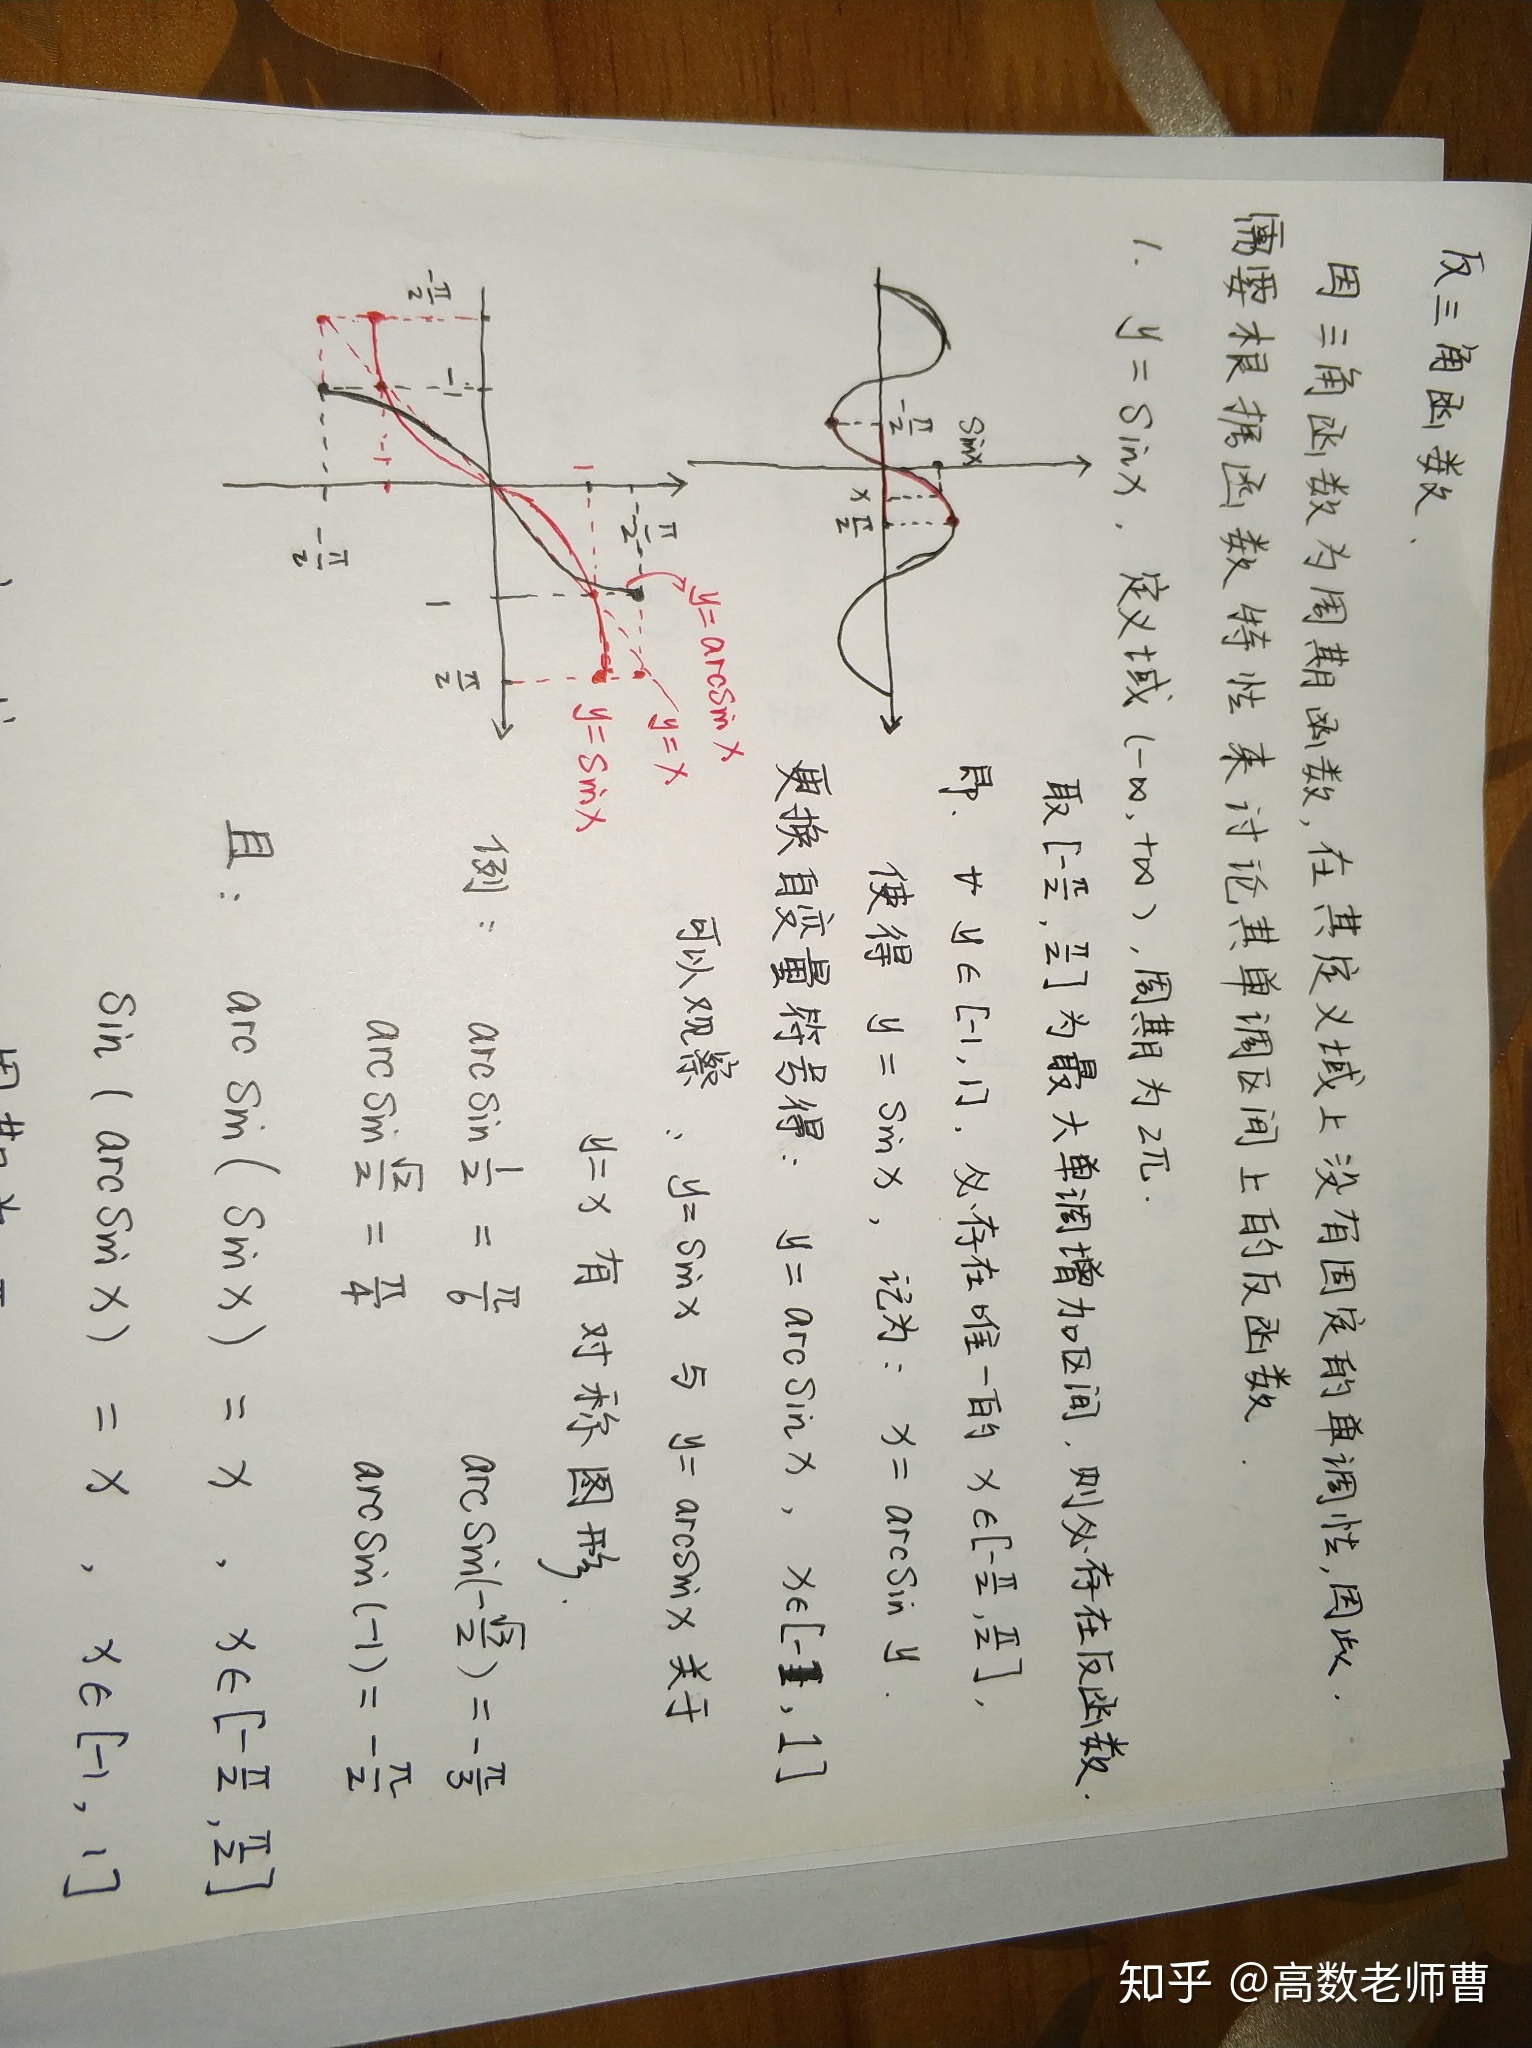 反三角函数、
因三角函数为周期函数,在其定义域上没有固定的单调性,因此.
需要根据函数特性来讨论其单调区间上的反函数.
1. y = sinx, 定义域(-∞,+∞),周期为2π.
取[-π/2, π/2]为最大单调增加区间.则必存在反函数.
sinx
-π/2
x
π/2
即. ∀ y∈[-1,1], 必存在唯一的 x∈[-π/2, π/2],
使得 y = sinx, 记为: x = arcsin y.
更换自变量符号得: y = arcsin x, x∈[-1, 1]
可以观察、y=sinx 与 y=arcsinx 关于
y=x 有对称图形.
y=arcsinx
y=x
y=sinx
π/2
1
-π/2
-1
1
π/2
-1
-π/2
例: arcsin 1/2 = π/6 arcsin(-√3/2) = -π/3
arcsin √2/2 = π/4 arcsin(-1) = -π/2
且: arcsin(sinx) = x , x∈[-π/2, π/2]
sin(arcsinx) = x , x∈[-1, 1]
知乎 @高数老师曹